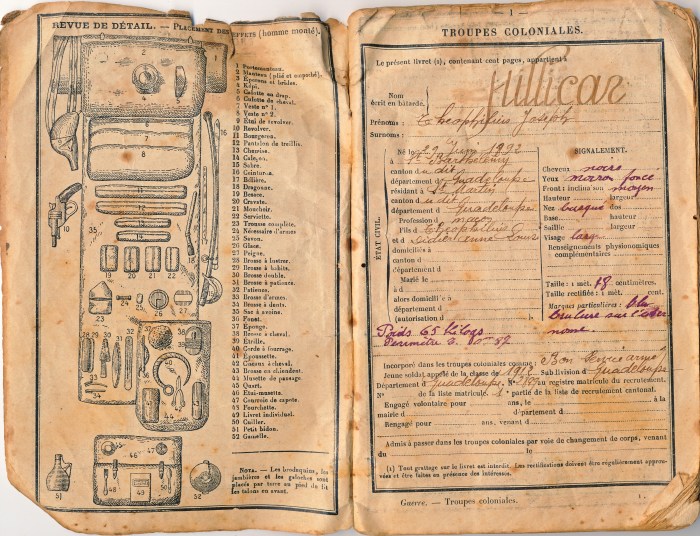 REVUE DE DÉTAIL. — PLACEMENT DES EFFETS (homme monté).
1 Portemanteau.
2 Manteau (plié et empoché).
3 Éperons et brides.
4 Képi.
5 Culotte en drap.
6 Culotte de cheval.
7 Veste n° 1.
8 Veste n° 2.
9 Étui de revolver.
10 Revolver.
11 Bourgeron.
12 Pantalon de treillis.
13 Chemise.
14 Caleçon.
15 Sabre.
16 Ceinture.
17 Bélière.
18 Dragonne.
19 Besace.
20 Cravate.
21 Mouchoir.
22 Serviette.
23 Trousse complète.
24 Nécessaire d'armes
25 Savon.
26 Glace.
27 Peigne.
28 Brosse à lustrer.
29 Brosse à habits.
30 Brosse double.
31 Brosse à patience.
32 Patience.
33 Brosse d'armes.
34 Brosse à dents.
35 Sac à avoine.
36 Fouet.
37 Éponge.
38 Brosse à cheval.
39 Étrille.
40 Corde à fourrage.
41 Époussette.
42 Ciseaux à cheval.
43 Brosse en chiendent.
44 Musette de pansage.
45 Quart.
46 Étui-musette.
47 Courroie de capote.
48 Fourchette.
49 Livret individuel.
50 Cuiller.
51 Petit bidon.
52 Gamelle.
NOTA. — Les brodequins, les
jambières et les galoches sont
placés par terre au pied du lit
les talons en avant.
— 1 —
TROUPES COLONIALES.
Le présent livret (1), contenant cent pages, appartient à
Nom
écrit en bâtarde, Hillicar
Prénoms : Théophilius Joseph
Surnoms :
ÉTAT CIVIL.
Né le 29 1892
à St Barthélemy
canton du dit
département d Guadeloupe
résidant à St Martin
canton du dit
département d Guadeloupe
Profession d
Fils d
et d
domiciliés à
canton d
département d
Marié le
à
d
alors domiciliée à
département d
(autorisation d
SIGNALEMENT.
Cheveux noirs
Yeux marron foncé
Front : inclinaison moyen
Hauteur largeur
Nez busqué dos
Base hauteur
Saillie largeur
Visage large
Renseignements physionomiques
complémentaires
Taille : 1 mèt. 78 centimètres.
Taille rectifiée : 1 mèt. cent.
Marques particulières :
brulure sur
Poids 65 Kilogs
Périmètre
Incorporé dans les troupes coloniales comme : Bon service armé
Jeune soldat, appelé de la classe de 1912 Subdivision d Guadeloupe
Département d Guadeloupe, N° au registre matricule du recrutement.
N° de la liste matricule. 1e partie de la liste de recrutement cantonal.
Engagé volontaire pour ans, le à la
mairie d département d
Rengagé pour ans, venant d
Admis à passer dans les troupes coloniales par voie de changement de corps, venant
du le
(1) Tout grattage sur le livret est interdit. Les rectifications doivent être régulièrement approu-
vées et être faites en présence des intéressés.
Guerre. — Troupes coloniales.